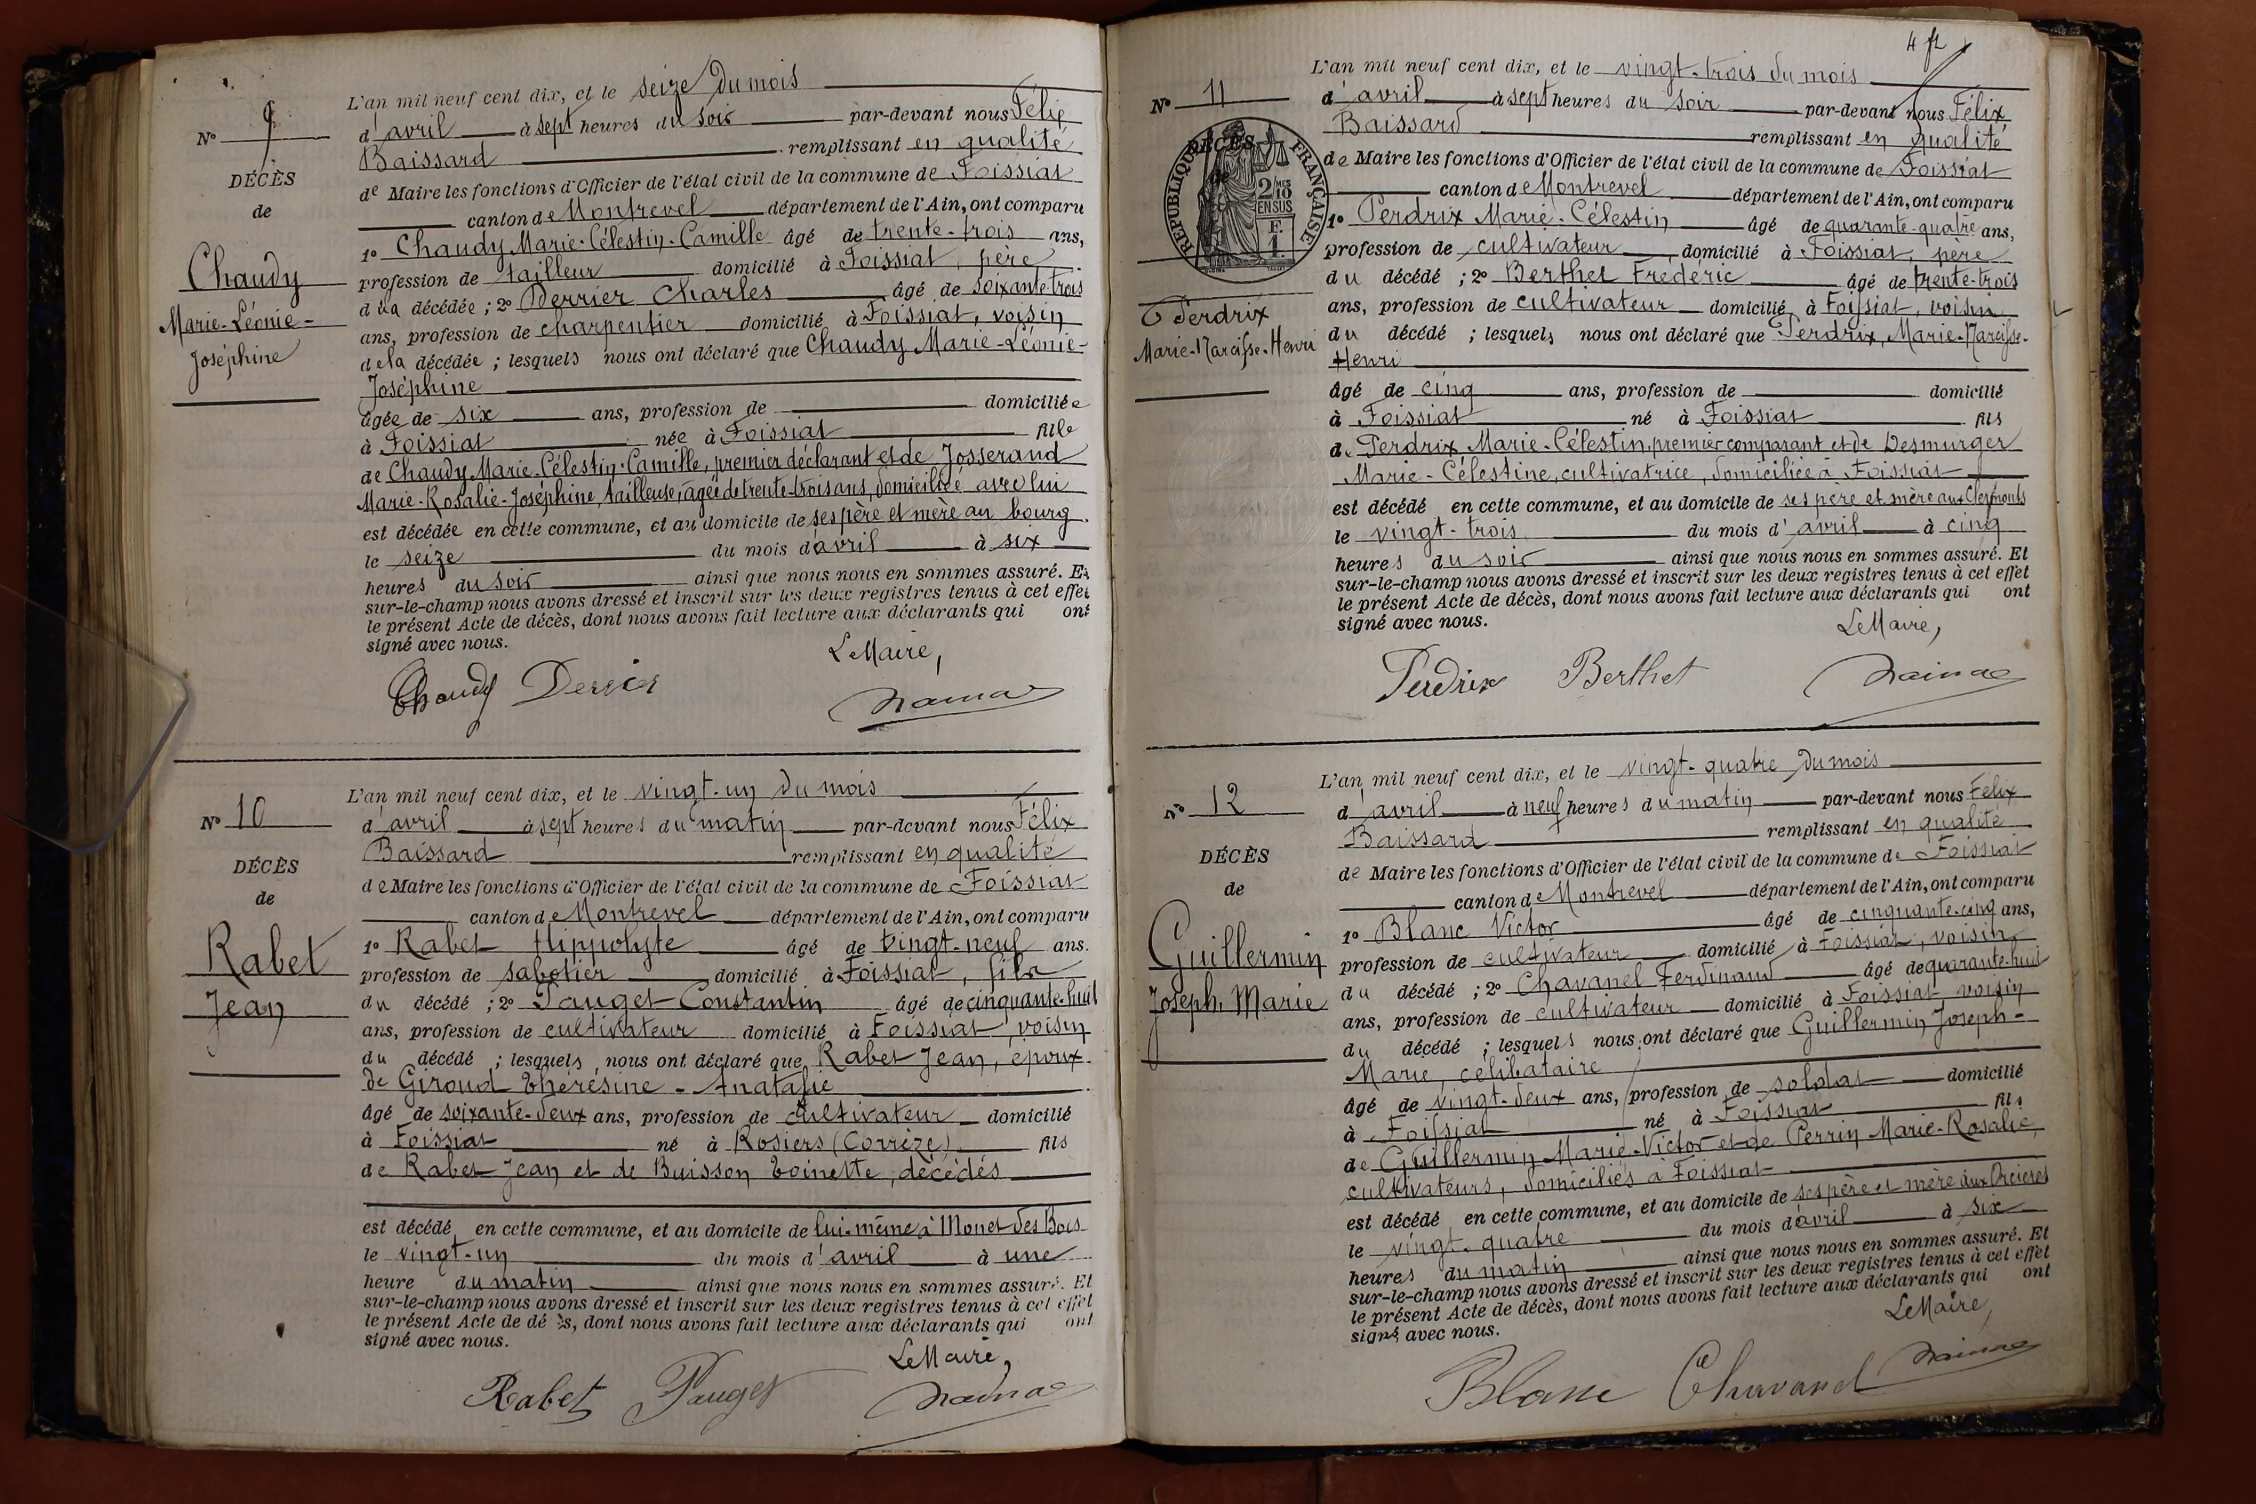 N° 9
DÉCÈS
de
Chaudy
Marie-Léonie-
Joséphine
L'an mil neuf cent dix, et le seize du mois
d'avril à sept heures du soir par-devant nous Félix
Baissard remplissant en qualité
de Maire les fonctions d'Officier de l'état civil de la commune de Foissiat
canton de Montrevel département de l'Ain, ont comparu
1° Chaudy Marie-Célestin-Camille âgé de trente-trois ans,
profession de tailleur domicilié à Foissiat, père
de la décédée ; 2° Derrier Charles âgé de soixante-trois
ans, profession de charpentier domicilié à Foissiat, voisin
de la décédée ; lesquels nous ont déclaré que Chaudy Marie-Léonie-
Joséphine
âgée de six ans, profession de domiciliée
à Foissiat née à Foissiat fille
de Chaudy Marie-Célestin-Camille, premier déclarant et de Josserand
Marie-Rosalie-Joséphine, tailleuse, âgée de trente-trois ans, domiciliée avec lui
est décédée en cette commune, et au domicile de ses père et mère au bourg
le seize du mois d'avril à six
heures du soir ainsi que nous nous en sommes assuré. Et
sur-le-champ nous avons dressé et inscrit sur les deux registres tenus à cet effet
le présent Acte de décès, dont nous avons fait lecture aux déclarants qui ont
signé avec nous.
Le Maire,
Chaudy Derrier
N° 10
DÉCÈS
de
Rabet
Jean
L'an mil neuf cent dix, et le vingt-un du mois
d'avril à sept heures du matin par-devant nous Félix
Baissard remplissant en qualité
de Maire les fonctions d'Officier de l'état civil de la commune de Foissiat
canton de Montrevel département de l'Ain, ont comparu
1° Rabet Hippolyte âgé de vingt-neuf ans.
profession de sabotier domicilié à Foissiat, fils
du décédé ; 2° Pauget Constantin âgé de cinquante-huit
ans, profession de cultivateur domicilié à Foissiat, voisin
du décédé ; lesquels nous ont déclaré que Rabet Jean, époux
de Giroud Thérésine-Anatalie
âgé de soixante-deux ans, profession de cultivateur domicilié
à Foissiat né à Rosiers (Corrèze) fils
de Rabet Jean et de Buisson Toinette, décédés
est décédé en cette commune, et au domicile de lui-même à Monet des Bois
le vingt-un du mois d'avril à une
heure du matin ainsi que nous nous en sommes assuré. Et
sur-le-champ nous avons dressé et inscrit sur les deux registres tenus à cet effet
le présent Acte de décès, dont nous avons fait lecture aux déclarants qui ont
signé avec nous.
Le Maire,
Rabet Pauget
N° 11
DÉCÈS
de
RÉPUBLIQUE FRANÇAISE
2/10 EN SUS
F.
1.
Perdrix
Marie-Narcisse-Henri
L'an mil neuf cent dix, et le vingt-trois du mois
d'avril à sept heures du soir par-devant nous Félix
Baissard remplissant en qualité
de Maire les fonctions d'Officier de l'état civil de la commune de Foissiat
canton de Montrevel département de l'Ain, ont comparu
1° Perdrix Marie-Célestin âgé de quarante-quatre ans,
profession de cultivateur, domicilié à Foissiat, père
du décédé ; 2° Berthet Frédéric âgé de trente-trois
ans, profession de cultivateur domicilié à Foissiat, voisin
du décédé ; lesquels nous ont déclaré que Perdrix Marie-Narcisse-
Henri
âgé de cinq ans, profession de domicilié
à Foissiat né à Foissiat fils
de Perdrix Marie-Célestin, premier comparant et de Desmurger
Marie-Célestine, cultivatrice, domiciliée à Foissiat
est décédé en cette commune, et au domicile de ses père et mère aux
le vingt-trois du mois d'avril à cinq
heures du soir ainsi que nous nous en sommes assuré. Et
sur-le-champ nous avons dressé et inscrit sur les deux registres tenus à cet effet
le présent Acte de décès, dont nous avons fait lecture aux déclarants qui ont
signé avec nous.
Le Maire,
Perdrix Berthet
N° 12
DÉCÈS
de
Guillermin
Joseph Marie
L'an mil neuf cent dix, et le vingt-quatre du mois
d'avril à neuf heures du matin par-devant nous Félix
Baissard remplissant en qualité
de Maire les fonctions d'Officier de l'état civil de la commune de Foissiat
canton de Montrevel département de l'Ain, ont comparu
1° Blanc Victor âgé de cinquante-cinq ans,
profession de cultivateur domicilié à Foissiat, voisin
du décédé ; 2° Chavanel Ferdinand âgé de quarante-huit
ans, profession de cultivateur domicilié à Foissiat, voisin
du décédé ; lesquels nous ont déclaré que Guillermin Joseph-
Marie, célibataire
âgé de vingt-deux ans, profession de soldat domicilié
à Foissiat né à Foissiat fils
de Guillermin Marie-Victor et de Perrin Marie-Rosalie,
cultivateurs, domiciliés à Foissiat
est décédé en cette commune, et au domicile de ses père et mère aux Orcières
le vingt-quatre du mois d'avril à six
heures du matin ainsi que nous nous en sommes assuré. Et
sur-le-champ nous avons dressé et inscrit sur les deux registres tenus à cet effet
le présent Acte de décès, dont nous avons fait lecture aux déclarants qui ont
signé avec nous.
Le Maire,
Blanc Chavanel